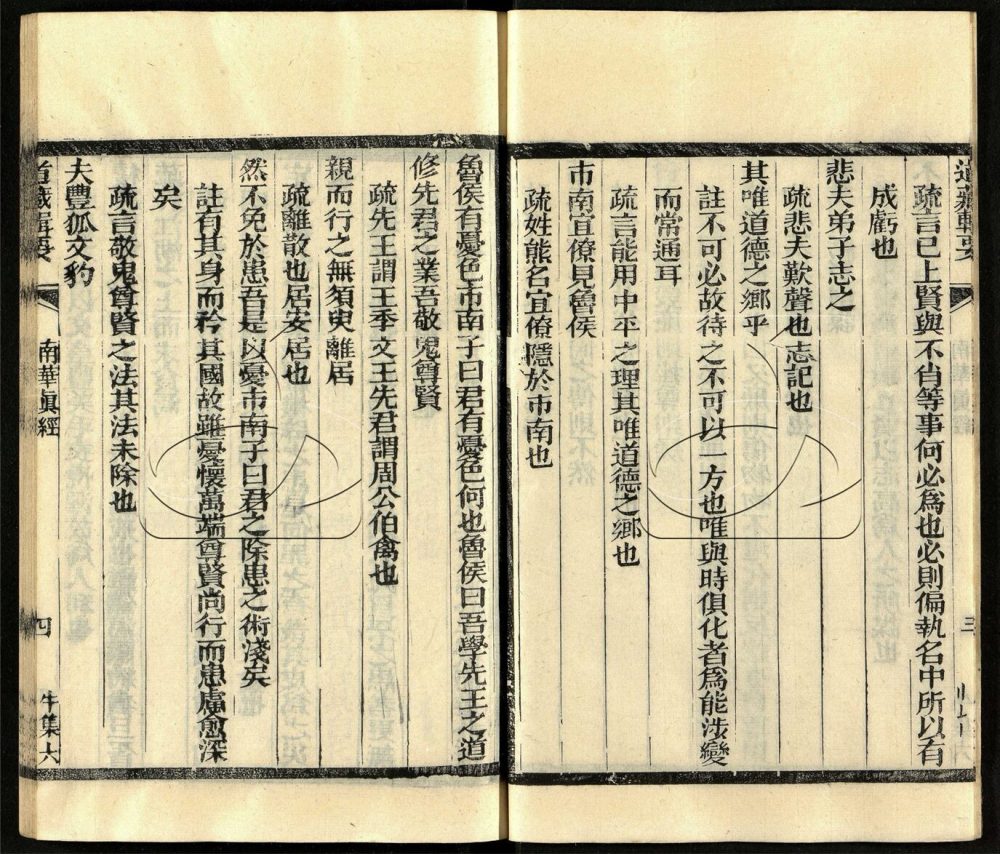 道藏輯要
三
疏言已上賢與不肖等事何必爲也必則偏執名中所以有
成虧也
悲夫弟子志之
疏悲夫歎聲也志記也
其唯道德之鄉乎
註不可必故待之不可以一方也唯與時俱化者爲能涉變
而常通耳
疏言能用中平之理其唯道德之鄉也
市南宜僚見魯侯
疏姓熊名宜僚隱於市南也
魯侯有憂色市南子曰君有憂色何也魯侯曰吾學先王之道
修先君之業吾敬鬼尊賢
疏先王謂王季文王先君謂周公伯禽也
親而行之無須臾離居
疏離散也居安居也
然不免於患吾是以憂市南子曰君之除患之術淺矣
註有其身而矜其國故雖憂懷萬端尊賢尚行而患慮愈深
矣
疏言敬鬼尊賢之法其法未除也
夫豐狐文豹
道藏輯要
南華眞經
四
牛集六